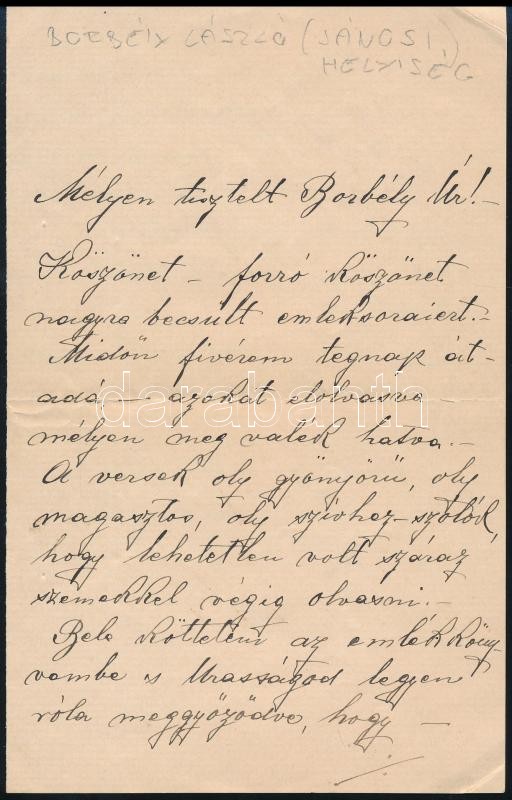 BORBÉLY LÁSZLÓ (JÁNOSI)
HELYISÉG
Mélyen tisztelt Borbély Úr! -
Köszönet - forró köszönet
nagyra becsült emléksoraiért. -
Midőn fivérem tegnap át-
adá - azokat elolvasva -
darabanth
mélyen meg valék hatva. -
A versek oly gyönyörű, oly
magasztos, oly szívhez-szólók,
hogy lehetetlen volt száraz
szemekkel végig olvasni. -
Bele köttetem az emlékköny-
vembe s Uraságod legyen
róla meggyőződve, hogy -